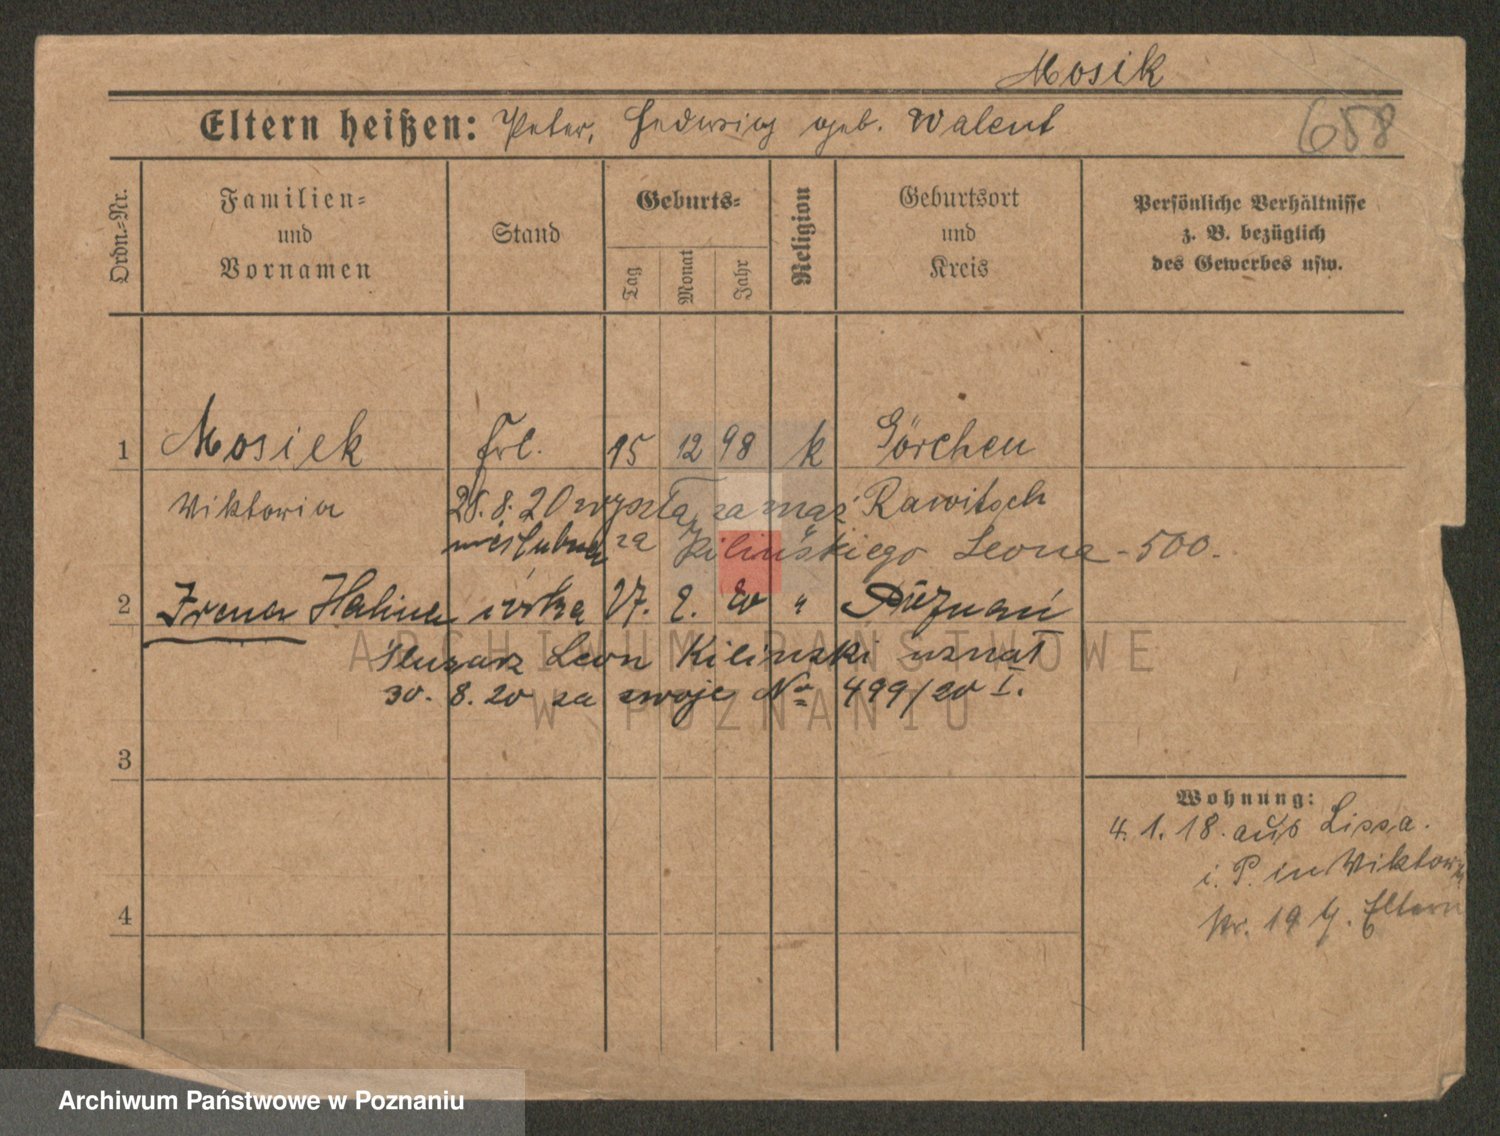 Mosik
Eltern heißen: Peter, Hedwig geb. Walent
658
Ordn.-Nr.
Familien-
und
Vornamen
Stand
Geburts-
Tag
Monat
Jahr
Religion
Geburtsort
und
Kreis
Persönliche Verhältnisse
z. B. bezüglich
des Gewerbes usw.
1 Mosiek Frl. 15 12 98 k Görchen
Viktoria 28. 8. 20 wyszła za mąż Rawitsch
za Kilińskiego Leona - 500.
2 Irena Halina córka 27. 2. 20 " Poznań
Ślusarz Leon Kilinski uznał
30. 8. 20 za swoje No 499/20 I.
3
4
Wohnung:
4. 1. 18. aus Lissa.
i. P. in Viktoria
str. 19 b. Eltern
ARCHIWUM PAŃSTWOWE
W POZNANIU
Archiwum Państwowe w Poznaniu